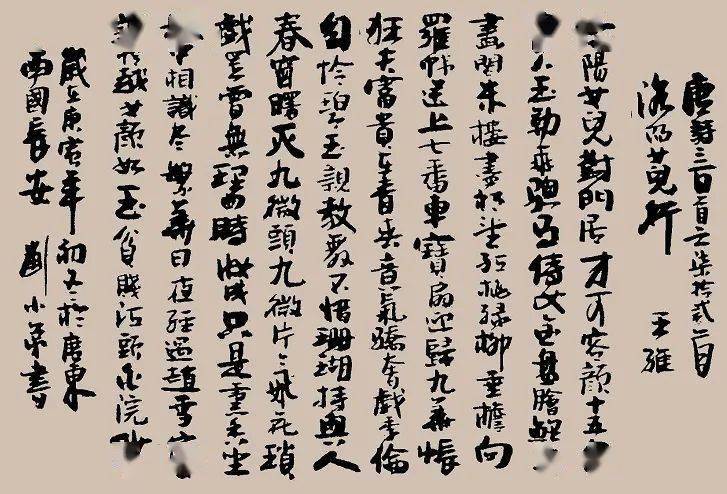 唐詩三百首之柒拾貳首
洛阳女兒行 王維
陽女兒對門居才可容顏十五
人玉勒乘驄馬侍女金盤膾鯉
畫閣朱樓盡相望紅桃緑柳垂檐向
羅帷送上七香車寶扇迎歸九華帳
狂夫富貴在青春意氣驕奢劇季倫
自怜碧玉親教舞不惜珊瑚持與人
春窗曙灭九微九微片々飛花瑣
戲罢曾無理時妝成只是熏香坐
中相識尽繁華日夜經過趙李
越女顏如玉貧賤江頭自浣
歲在庚寅年初夏於廣東
西國長安 劉小弟書